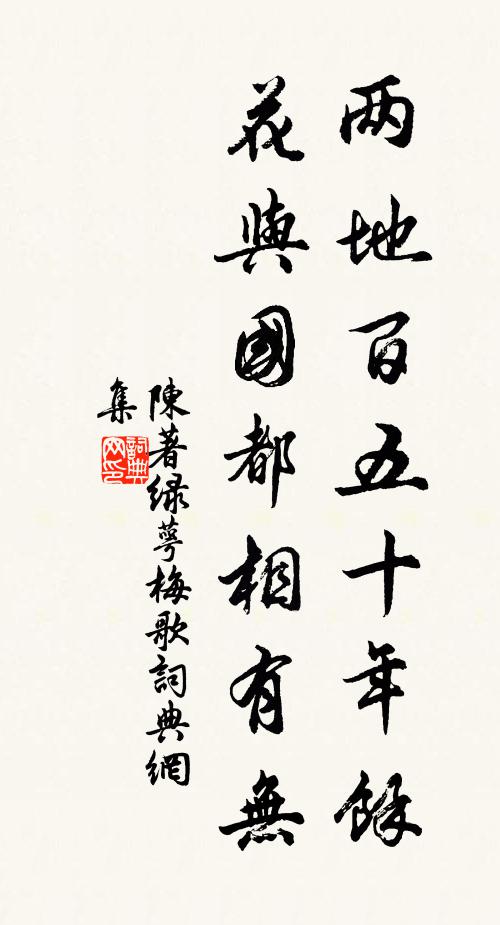 两地百五十年餘
花與國都相有無
陳著緑萼梅歌詞典網
集
詞典網印